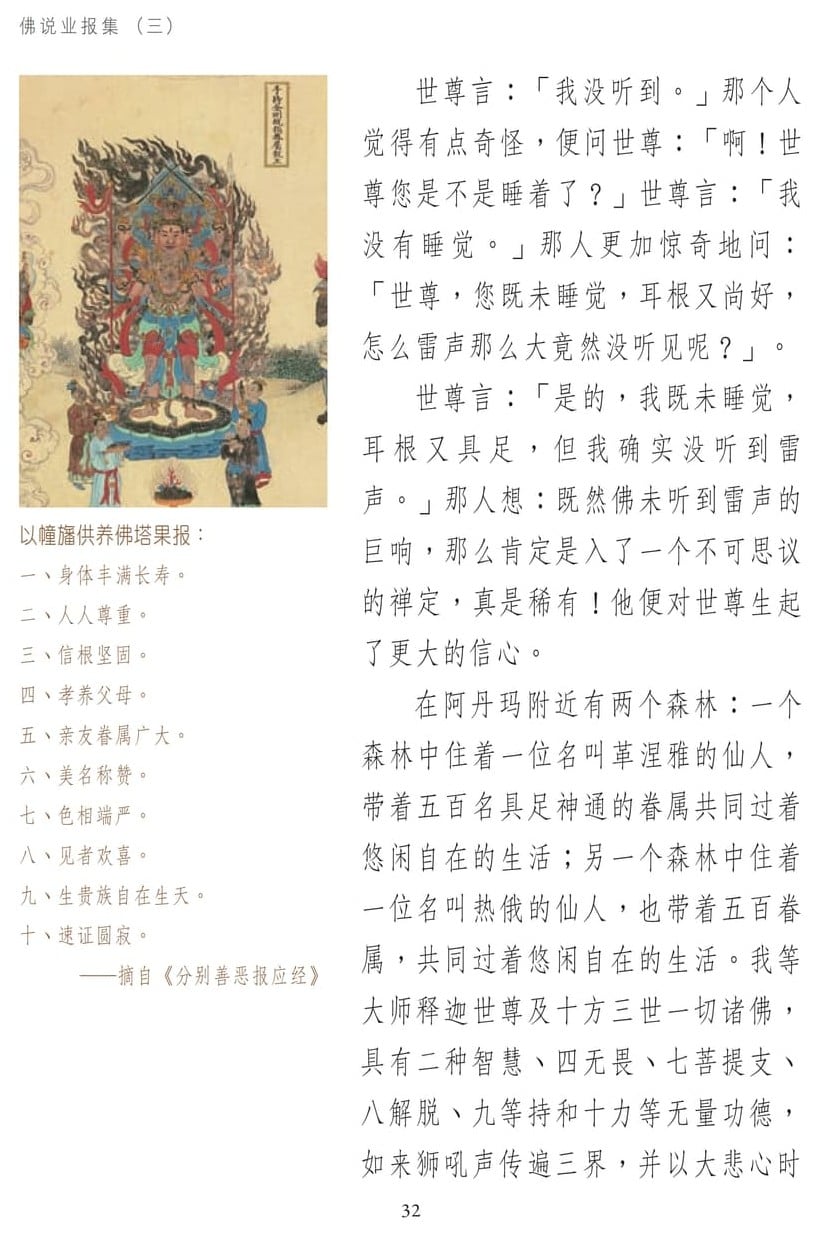 佛说业报集（三）
以幢旛供养佛塔果报：
一、身体丰满长寿。
二、人人尊重。
三、信根坚固。
四、孝养父母。
五、亲友眷属广大。
六、美名称赞。
七、色相端严。
八、见者欢喜。
九、生贵族自在生天。
十、速证圆寂。
——摘自《分别善恶报应经》
世尊言：「我没听到。」那个人
觉得有点奇怪，便问世尊：「啊！世
尊您是不是睡着了？」世尊言：「我
没有睡觉。」那人更加惊奇地问：
「世尊，您既未睡觉，耳根又尚好，
怎么雷声那么大竟然没听见呢？」。
世尊言：「是的，我既未睡觉，
耳根又具足，但我确实没听到雷
声。」那人想：既然佛未听到雷声的
巨响，那么肯定是入了一个不可思议
的禅定，真是稀有！他便对世尊生起
了更大的信心。
在阿丹玛附近有两个森林：一个
森林中住着一位名叫革涅雅的仙人，
带着五百名具足神通的眷属共同过着
悠闲自在的生活；另一个森林中住着
一位名叫热俄的仙人，也带着五百眷
属，共同过着悠闲自在的生活。我等
大师释迦世尊及十方三世一切诸佛，
具有二种智慧、四无畏、七菩提支、
八解脱、九等持和十力等无量功德，
如来狮吼声传遍三界，并以大悲心时
32